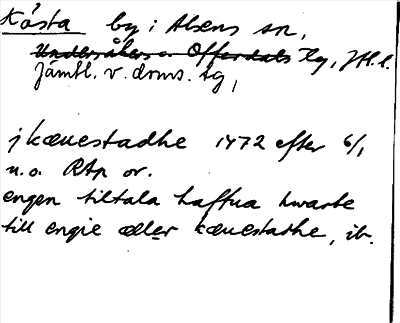 Kösta by i Alsens sn,
Undersåkers o. Offerdals tg, Jtl. l.
Jämtl. v. doms. tg,
j kæuestadhe 1472 efter 6/1
u.o. RAp or.
engen tiltala haffua hwarte
till engie æller kæuestadhe, ib.